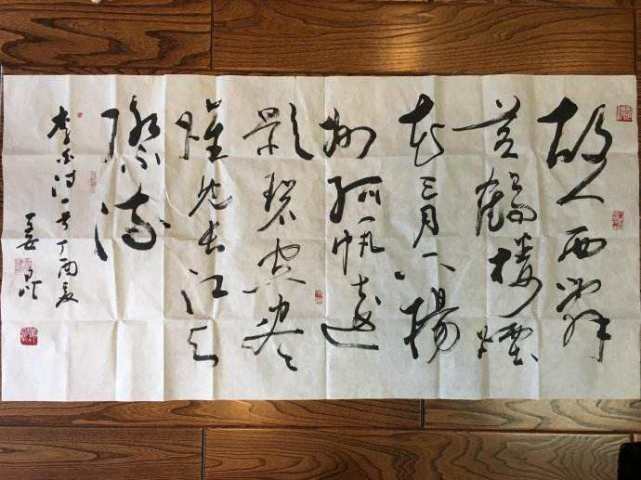 故人西辞
黄鹤楼煙
花三月下揚
州孤帆远
影碧空尽
唯见长江天
际流
李白诗一首丁酉夏